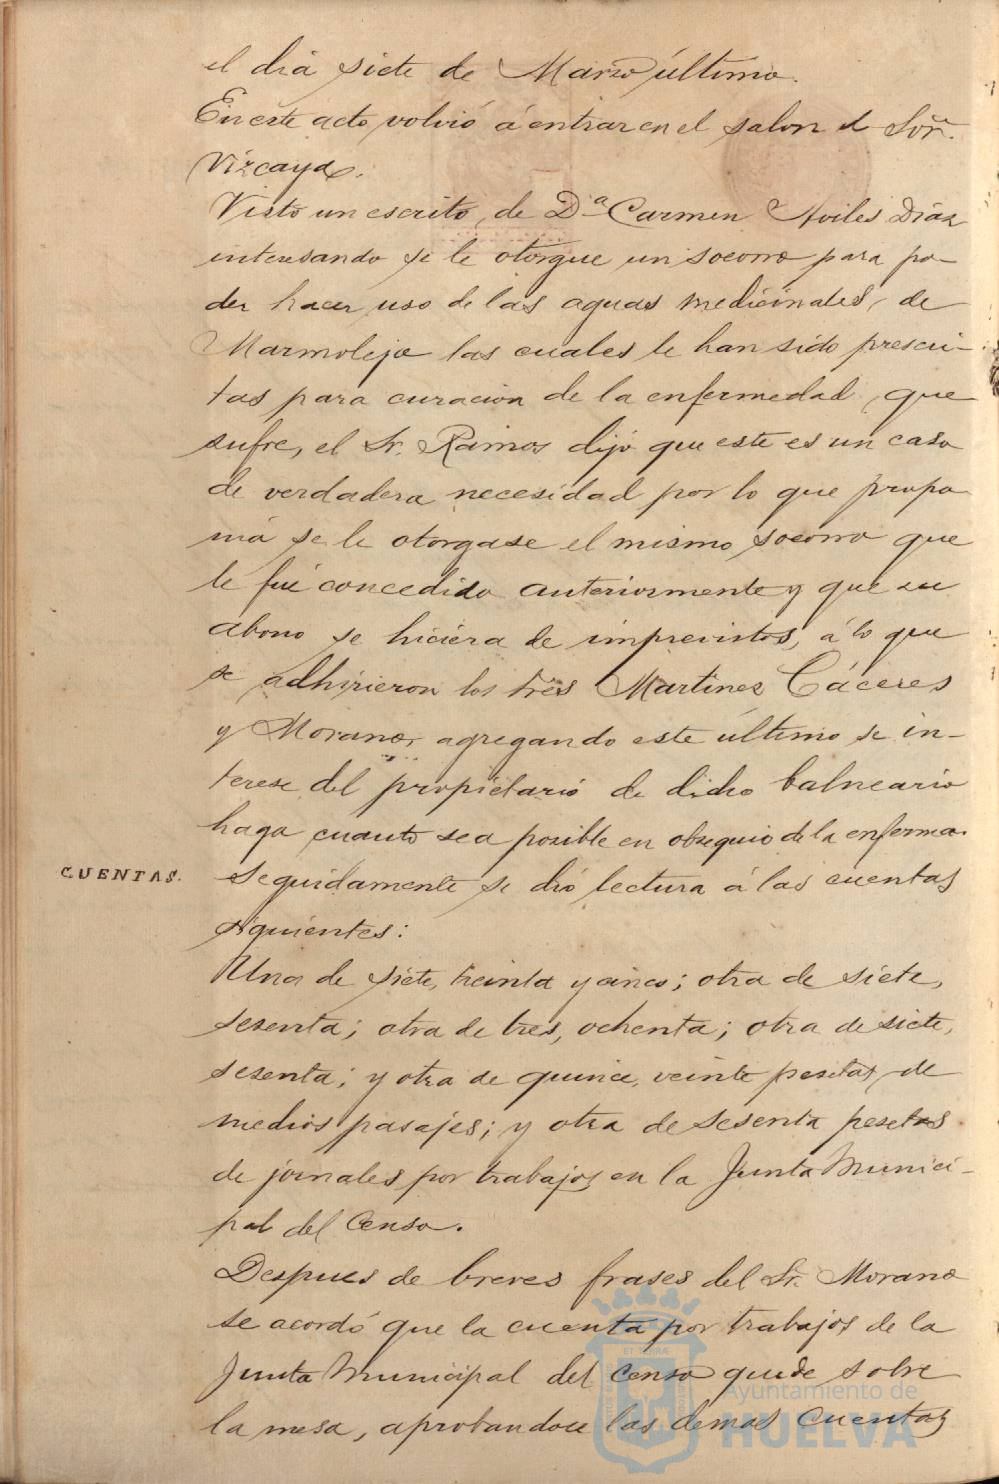 el dia siete de Marzo último.
En este acto volvió á entrar en el salon el Sor.
Vizcaya.
Visto un escrito de Dª Carmen Aviles Diaz
interesando se le otorgue un socorro para po-
der hacer uso de las aguas medicinales, de
Marmolejo las cuales le han sido prescri-
tas para curacion de la enfermedad que
sufre, el Sr. Ramos dijo que este es un caso
de verdadera necesidad por lo que propo
nia se le otorgase el mismo socorro que
le fué concedido anteriormente y que su
abono se hiciera de imprevistos, á lo que
se adhirieron los Sres Martinez Cáceres
y Morano, agregando este último se in-
terese del propietario de dicho balneario
haga cuanto sea posible en obsequio de la enferma.
CUENTAS. Seguidamente se dió lectura á las cuentas
siguientes:
Una de siete, treinta y cinco; otra de siete,
sesenta; otra de tres, ochenta; otra de siete,
sesenta; y otra de quince, veinte pesetas, de
medios pasajes; y otra de sesenta pesetas
de jornales por trabajos en la Junta Munici-
pal del Censo.
Despues de breves frases del Sr. Morano
se acordó que la cuenta por trabajos de la
Junta Municipal del Censo quede sobre
la mesa, aprobandose las demas cuentas
Ayuntamiento de
HUELVA